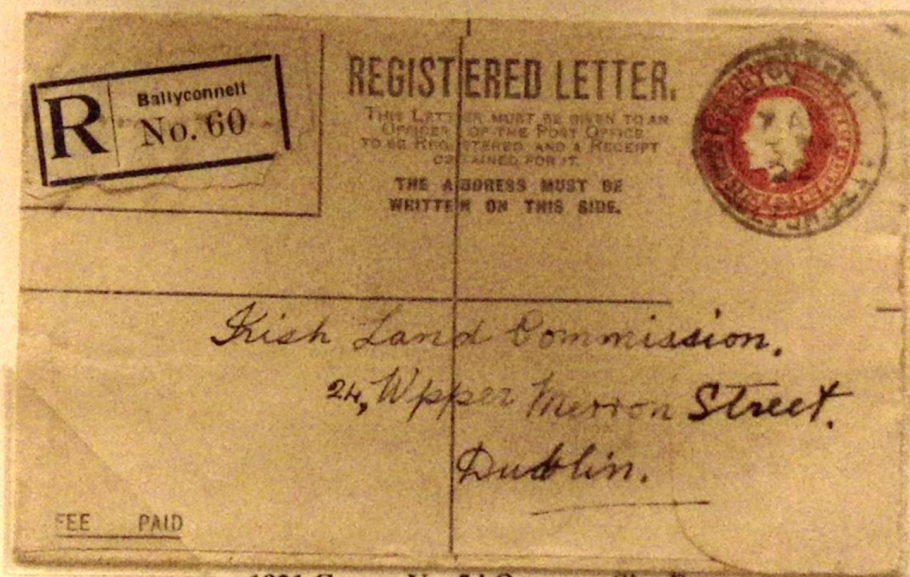 R
Ballyconnell
No. 60
REGISTERED LETTER.
THIS LETTER MUST BE GIVEN TO AN
OFFICER OF THE POST OFFICE
TO BE REGISTERED AND A RECEIPT
OBTAINED FOR IT.
THE ADDRESS MUST BE
WRITTEN ON THIS SIDE.
Irish Land Commission.
24, Upper Merron Street.
Dublin.
FEE PAID